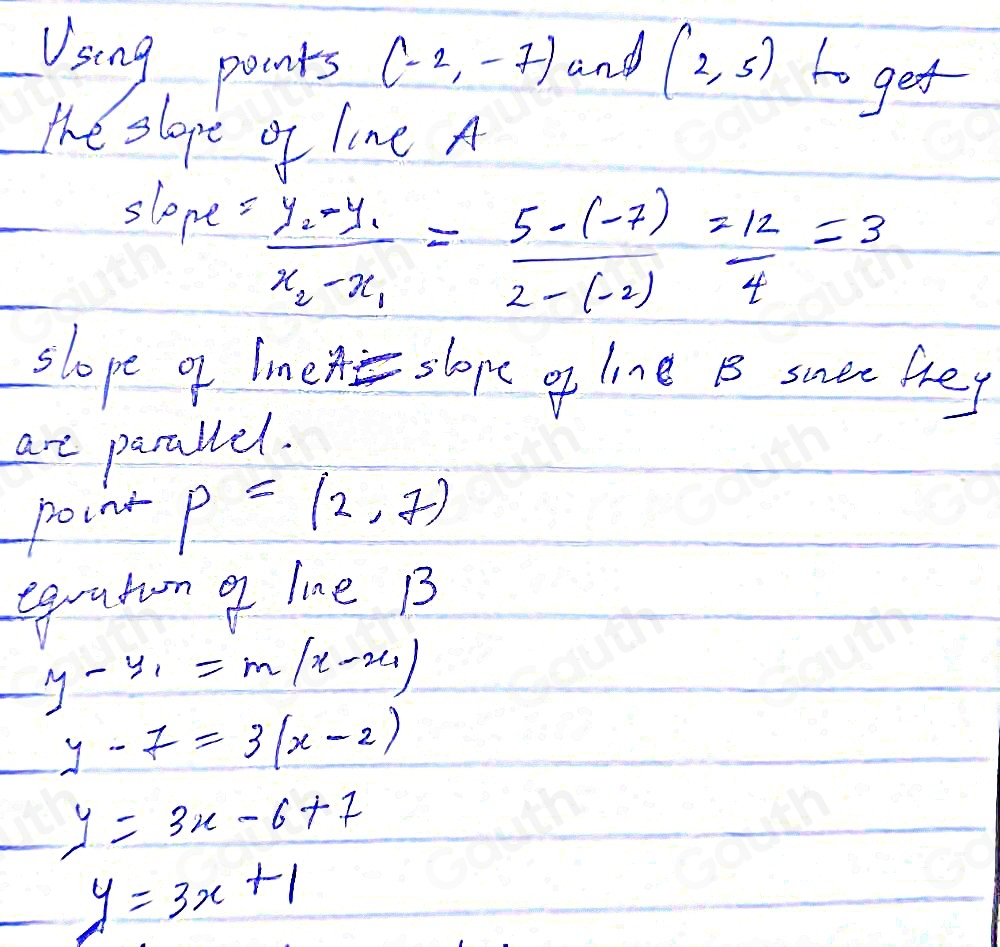 Using points (-2, -7) and (2, 5) to get
the slope of line A
slope = y₂-y₁ / x₂-x₁ = 5-(-7) / 2-(-2) = 12 / 4 = 3
slope of line A = slope of line B since they
are parallel.
point P = (2, 7)
equation of line B
y - y₁ = m(x-x₁)
y - 7 = 3(x-2)
y = 3x - 6 + 7
y = 3x + 1